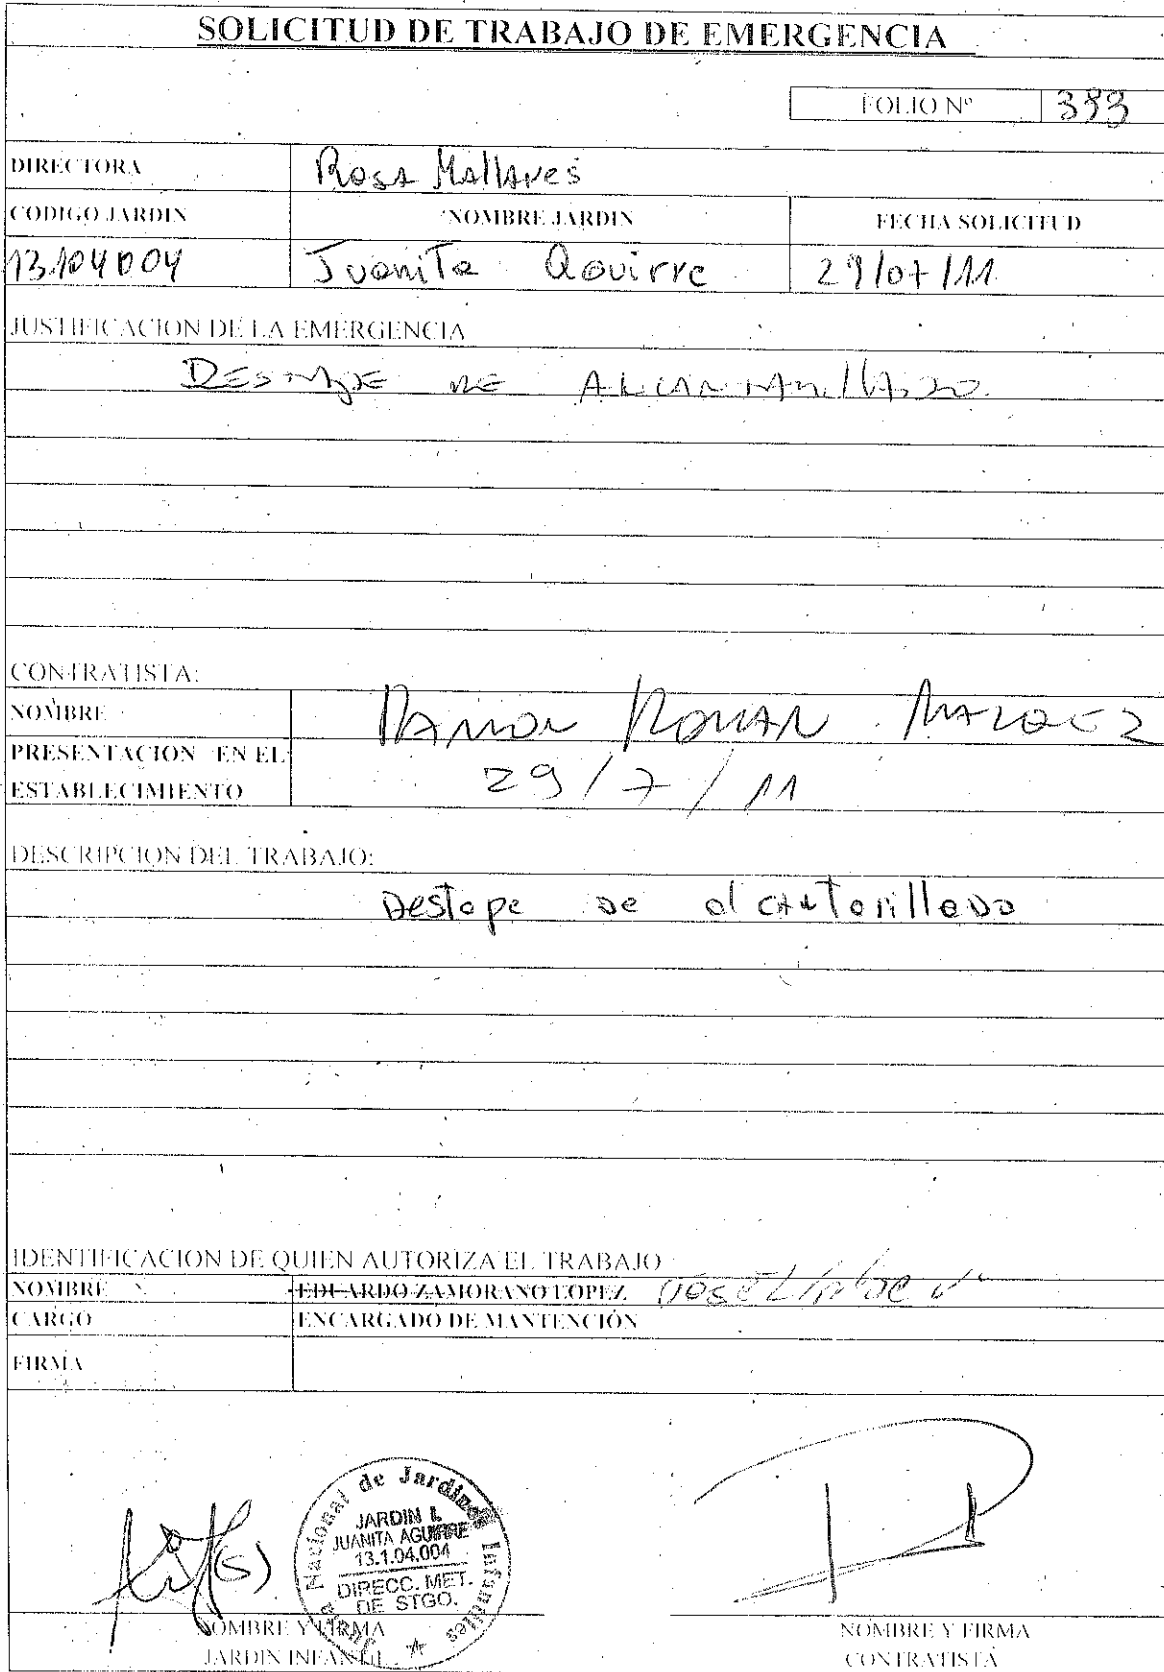 SOLICITUD DE TRABAJO DE EMERGENCIA
FOLIO Nº 383
DIRECTORA Rosa Mallares
CODIGO JARDIN NOMBRE JARDIN FECHA SOLICITUD
13.104004 Juanita Aguirre 29/07/11
JUSTIFICACION DE LA EMERGENCIA
DESTAPE DE ALCANTARILLADO
CONTRATISTA:
NOMBRE RAMON ROMAN
PRESENTACION EN EL ESTABLECIMIENTO 29/7/11
DESCRIPCION DEL TRABAJO:
Destape de alcantarillado
IDENTIFICACION DE QUIEN AUTORIZA EL TRABAJO
NOMBRE EDUARDO ZAMORANO LOPEZ JOSE
CARGO ENCARGADO DE MANTENCIÓN
FIRMA
(S)
Junta Nacional de Jardines Infantiles
JARDIN I.
JUANITA AGUIRRE
13.1.04.004
DIRECC. MET.
DE STGO.
NOMBRE Y FIRMA
JARDIN INFANTIL
NOMBRE Y FIRMA
CONTRATISTA